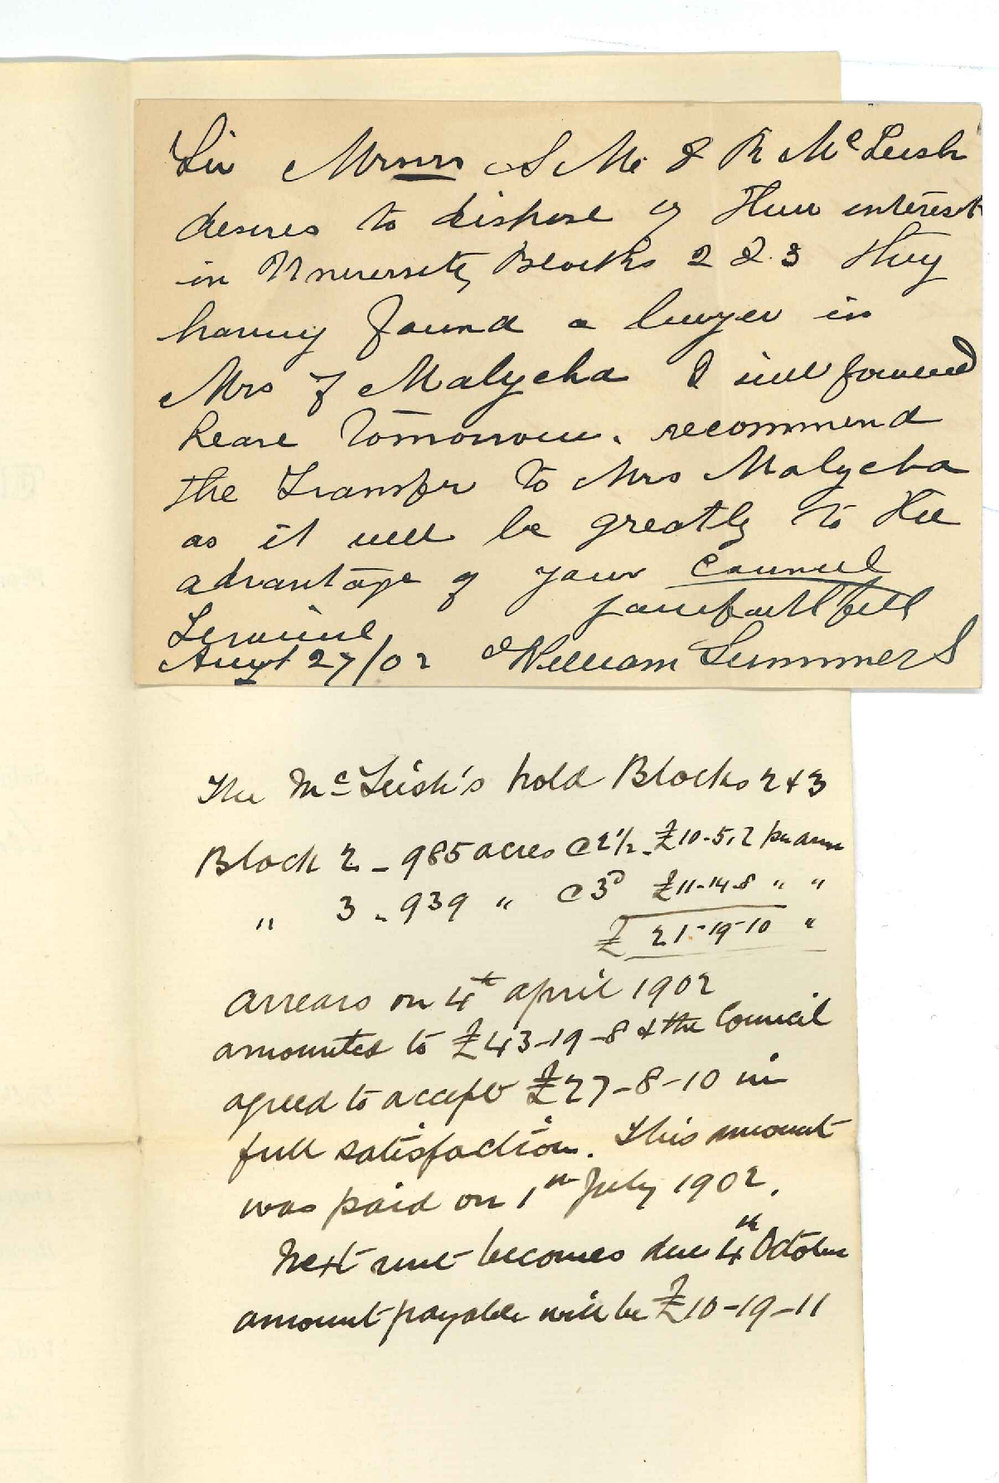 Sir Messrs S Mc & R McLeish
desires to dispose of Their interest
in University Blocks 2 & 3 They
having found a buyer in
Mrs F Malycha I will forward
Lease Tomorrow. recommend
the Transfer To Mrs Malycha
as it will be greatly to the
advantage of your Council
yours faithfull
Augt 27/02 William Summers
The McLeish's hold Blocks 2 & 3
Block 2 - 985 acres @ 2½ - £10-5.2 per ann
" 3 - 939 " @ 3d £11-14-8 " "
£ 21-19-10 "
Arrears on 4th April 1902
amounted to £43-19-8 & the Council
agreed to accept £27-8-10 in
full satisfaction. This amount
was paid on 1st July 1902.
Next rent becomes due 4th October
amount payable will be £10-19-11